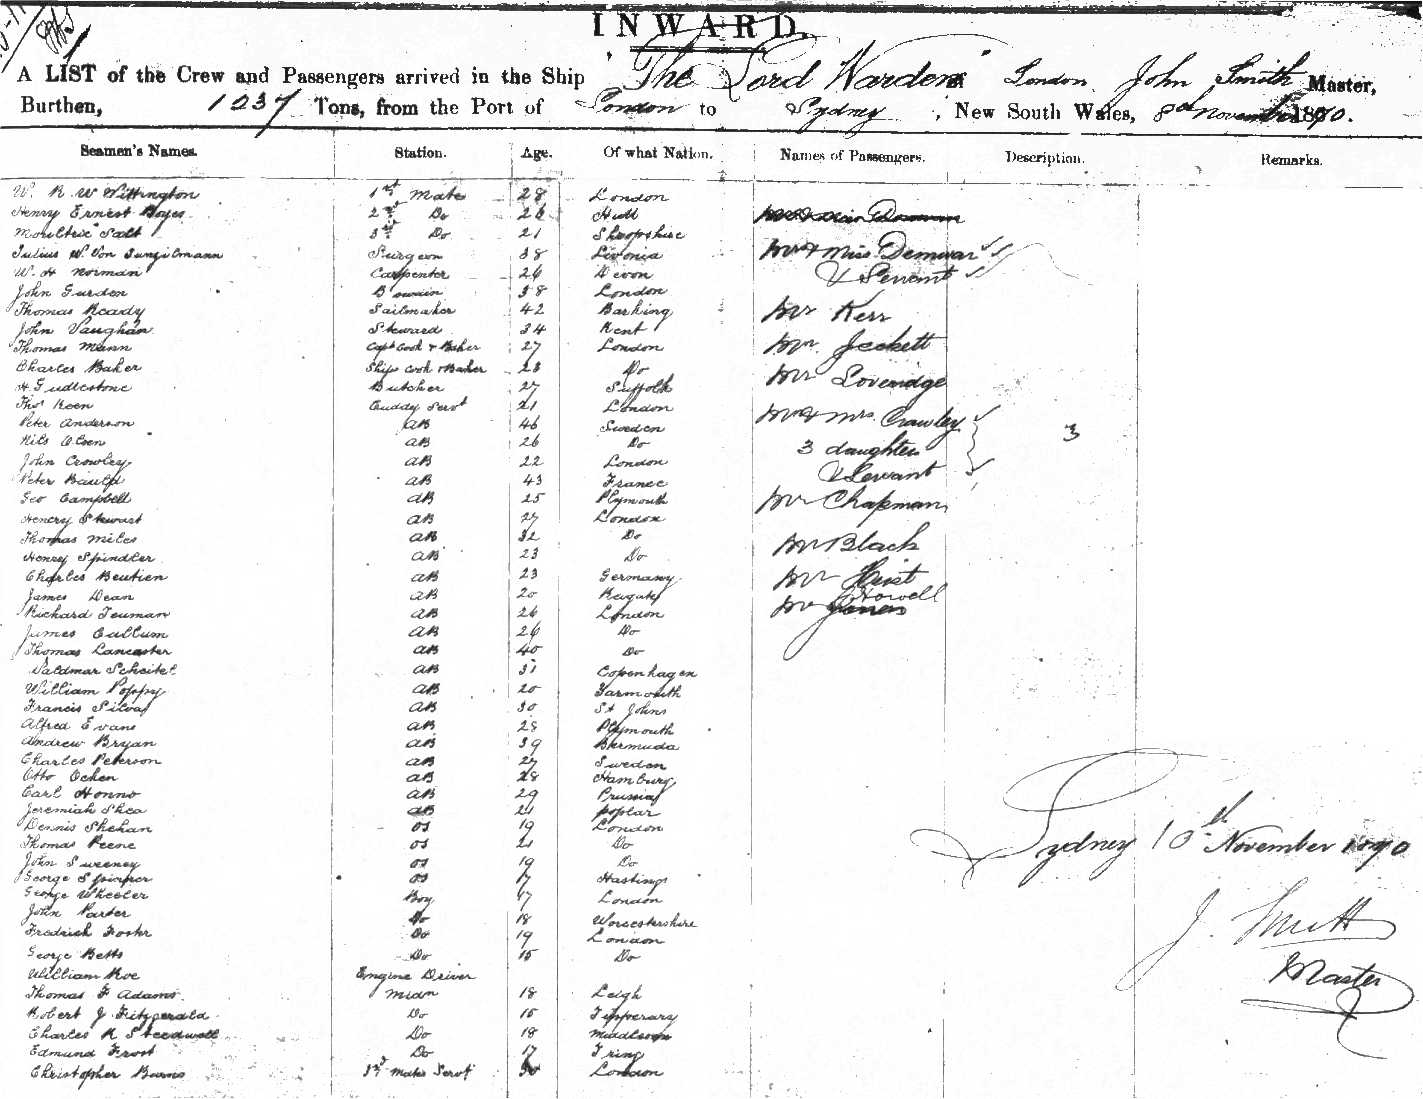 INWARD.
A LIST of the Crew and Passengers arrived in the Ship "The Lord Warden" London John Smith Master,
Burthen, 1237 Tons, from the Port of London to Sydney, New South Wales, 8th November 1870.
Seamen's Names. Station. Age. Of what Nation. Names of Passengers. Description. Remarks.
W. R. W Wittington 1st Mate 28 London
Henry Ernest Boyes 2nd Do 26 Hull
Moultrie Salt 3rd Do 21 Shropshire
Julius W. Von Surgeon 38 Livonia Mr & Miss
W. H Norman Carpenter 26 Devon & Servant
John Gurden Bosuin 38 London
Thomas Ready Sailmaker 42 Barking Mr Kerr
John Vaughan Steward 34 Kent
Thomas Mann Capt Cook & Baker 27 London Mr. Jeckett
Charles Baker Ships Cook & Baker 23 Do
H Gudlestone Butcher 27 Suffolk Mr Loveridge
Thos Keen Cuddy Servt 21 London
Peter Anderson AB 46 Sweden Mr & Mrs. Crawley
Nils Olsen AB 26 Do 3 daughters 3
John Crowley AB 22 London
Peter AB 43 France & Servant
Geo Campbell AB 25 Plymouth Mr Chapman
Henery Stewart AB 27 London
Thomas Miles AB 32 Do Mr Black
Henry Spindler AB 23 Do
Charles Beutien AB 23 Germany Mr Hirst
James Dean AB 20 Reigate Howell
Richard Teuman AB 26 London Mr
James Cullum AB 26 Do
Thomas Lancaster AB 40 Do
Valdmar Scheitel AB 31 Copenhagen
William Poppy AB 20 Yarmouth
Francis Silva AB 30 St Johns
Alfred Evans AB 28 Plymouth
Andrew Bryan AB 39 Bermuda
Charles Peterson AB 27 Sweden
Otto Ochen AB 28 Hamburg
Carl Honno AB 29 Prussia
Jeremiah Shea AB 21 Poplar
Dennis Shehan OS 19 London
Thomas Peene OS 21 Do
John Sweeney OS 19 Do
George Spicer OS 17 Hastings
George Wheeler Boy 17 London
John Parter Do 18 Worcestershire
Fredrich Foster Do 19 London
George Betts Do 15 Do
William Roe Engine Driver
Thomas F Adams Midn 18 Leigh
Robert J Fitzgerald Do 15 Tipperary
Charles R Steedwell Do 18 Middlesex
Edmund Frost Do 17 Tring
Christopher Burns 3rd Mates Servt London
Sydney 10th November 1870
J. Smith
Master